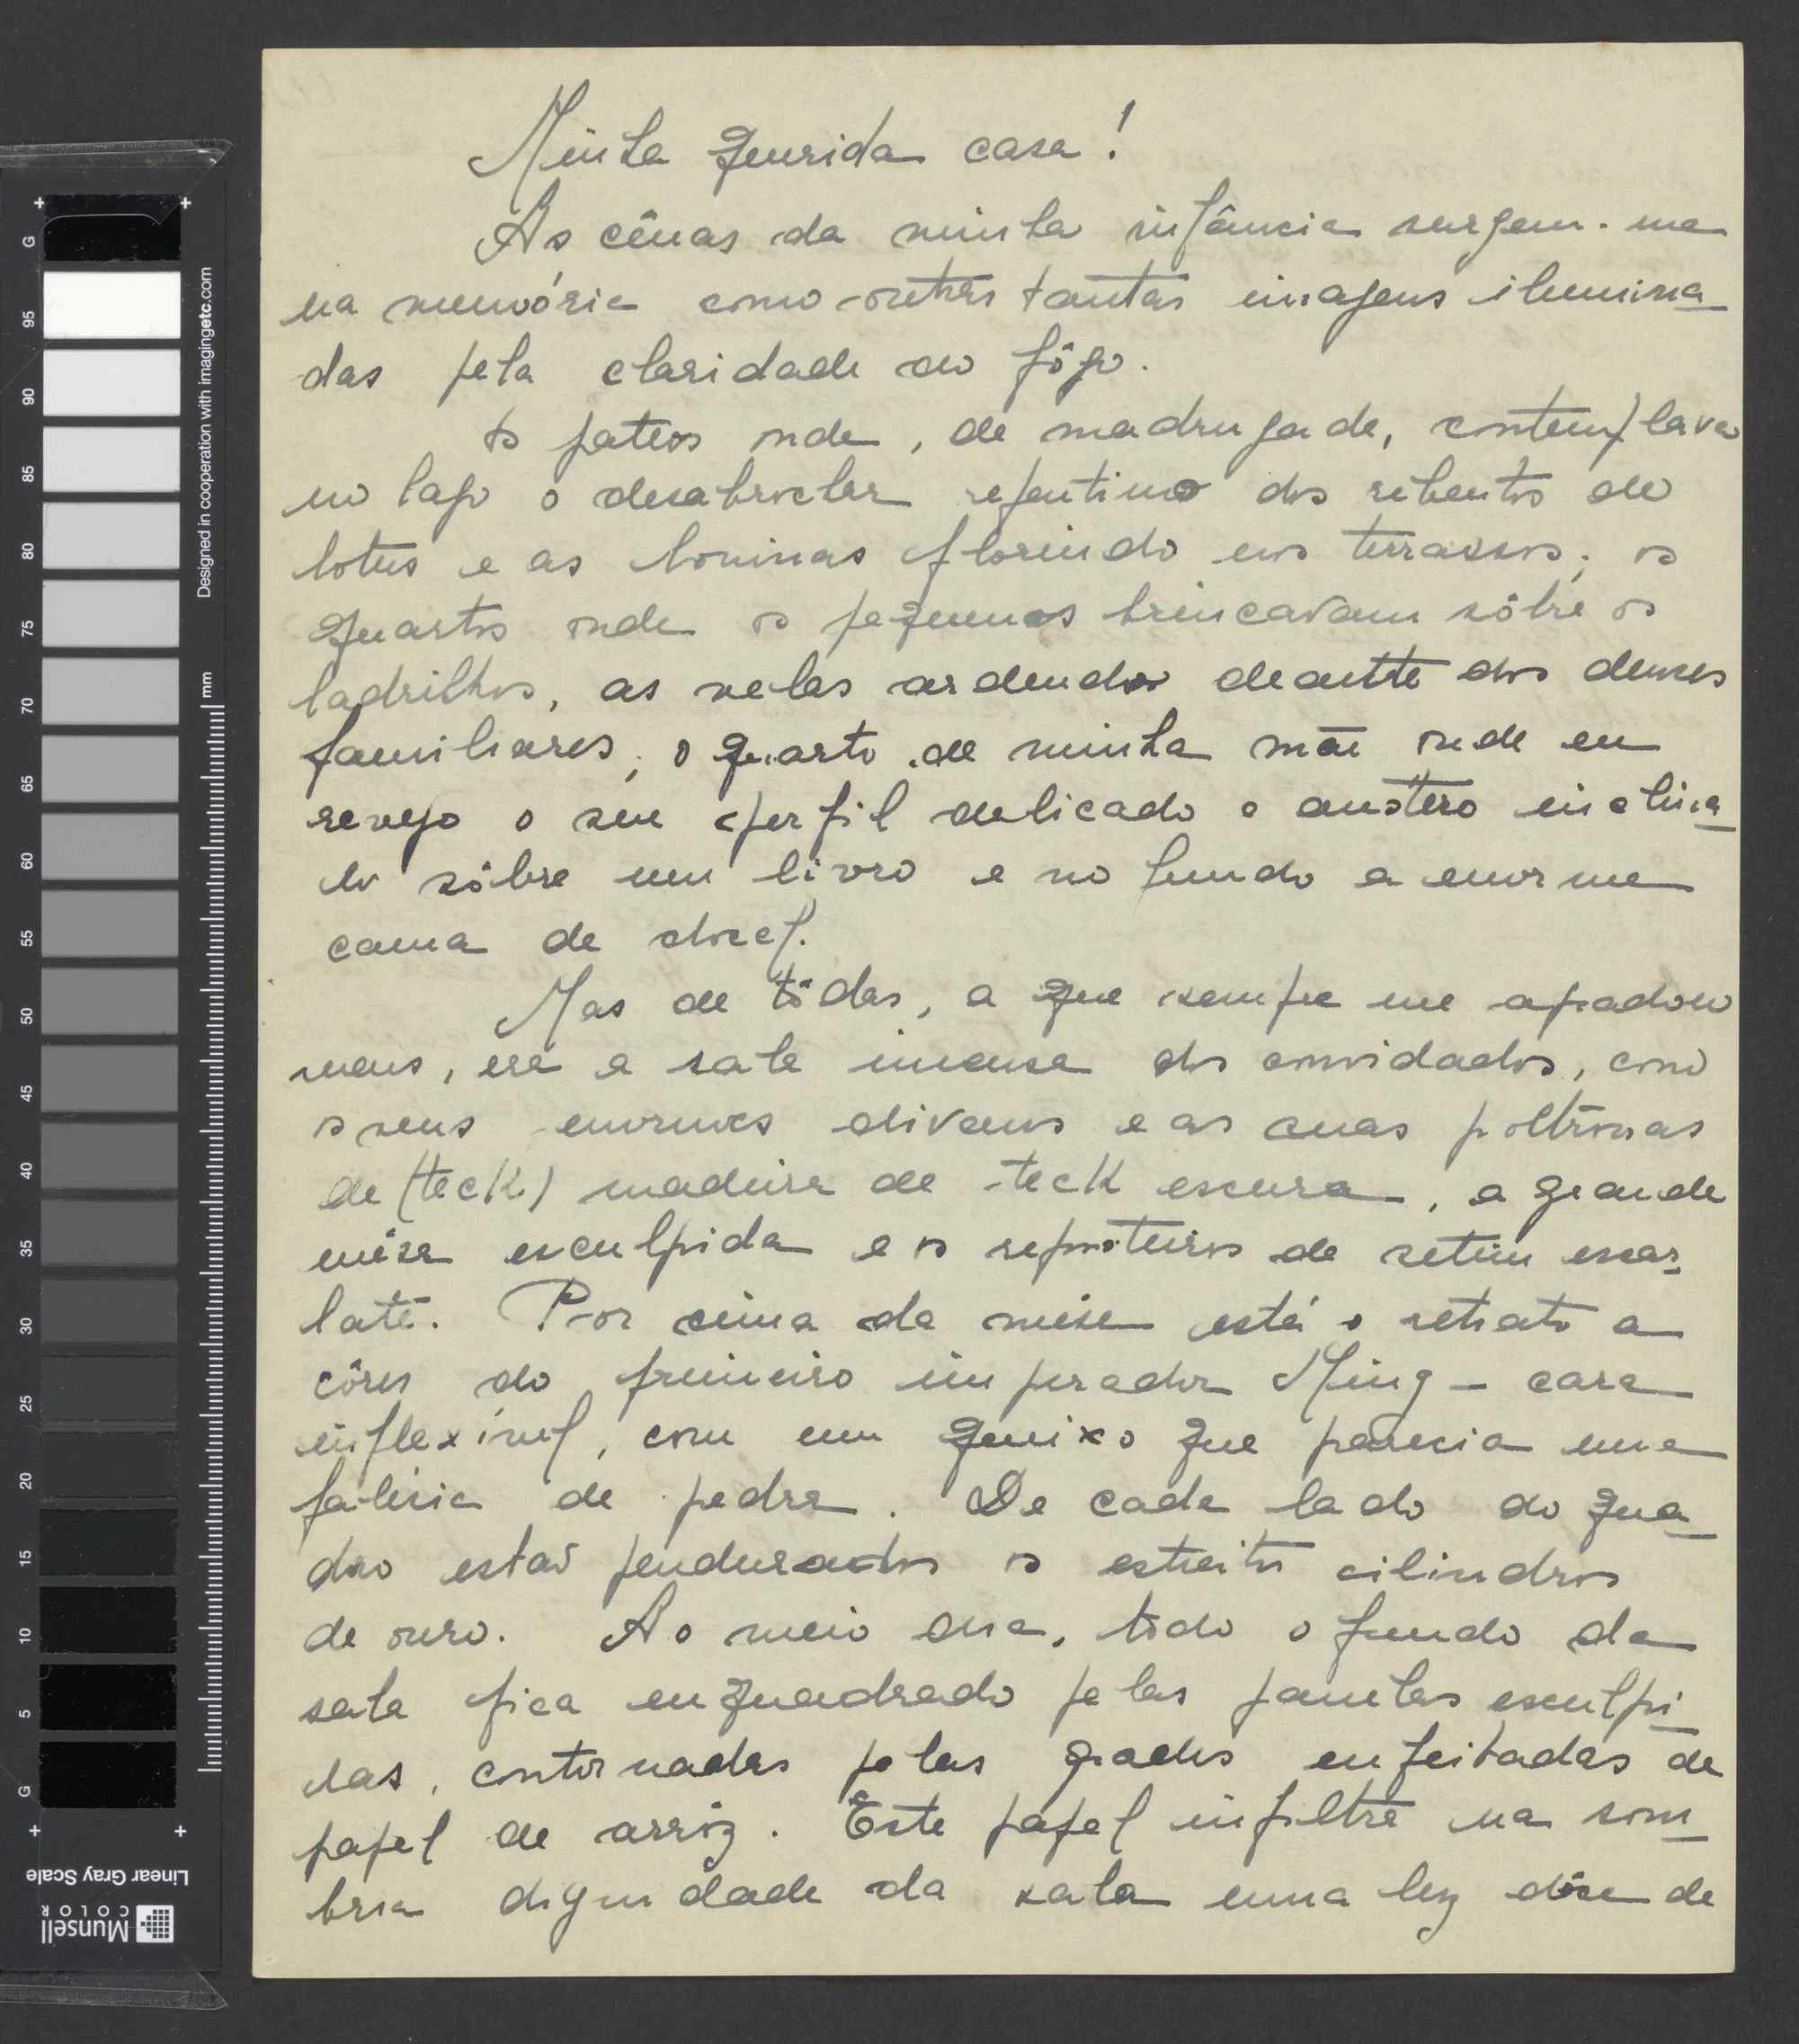 Minha querida casa!
As cênas da minha infância surgem-me
na memória como outras tantas imagens ilumina
das pela claridade do fôgo.
Os pateos onde, de madrugada, contemplava
no lago o desabrochar repentino dos rebentos de
lotus e as boninas florindo nos terrassos; os
quartos onde os pequenos brincavam sôbre os
ladrilhos, as velas ardendo deante dos deuses
familiares; o quarto de minha mãe onde eu
revejo o seu perfil delicado e austero inclina
do sôbre um livro e no fundo a enorme
cama de docel.
Mas de tôdas, a que sempre me agradou
mais, era a sala imensa dos convidados, com
os seus enormes divans e as suas poltronas
de (teck) madeira de teck escura, a grande
mêsa esculpida e os reposteiros de setim escar
late. Por cima da mêsa está o retrato a
côres do primeiro imperador Ming - cara
inflexível, com um queixo que parecia uma
falésia de pedra. De cada lado do qua
dro estão pendurados os estreitos cilindros
de ouro. Ao meio dia, todo o fundo da
sala fica enquadrado pelas janelas esculpi
das, contornadas pelas grades enfeitadas de
papel de arroz. Êste papel infiltra na som
bria dignidade da sala uma luz dôce de
Designed in cooperation with imagingetc.com
mm
G
95
90
85
80
75
70
65
60
55
50
45
40
35
30
25
20
15
10
5
G
Linear Gray Scale
Munsell
COLOR